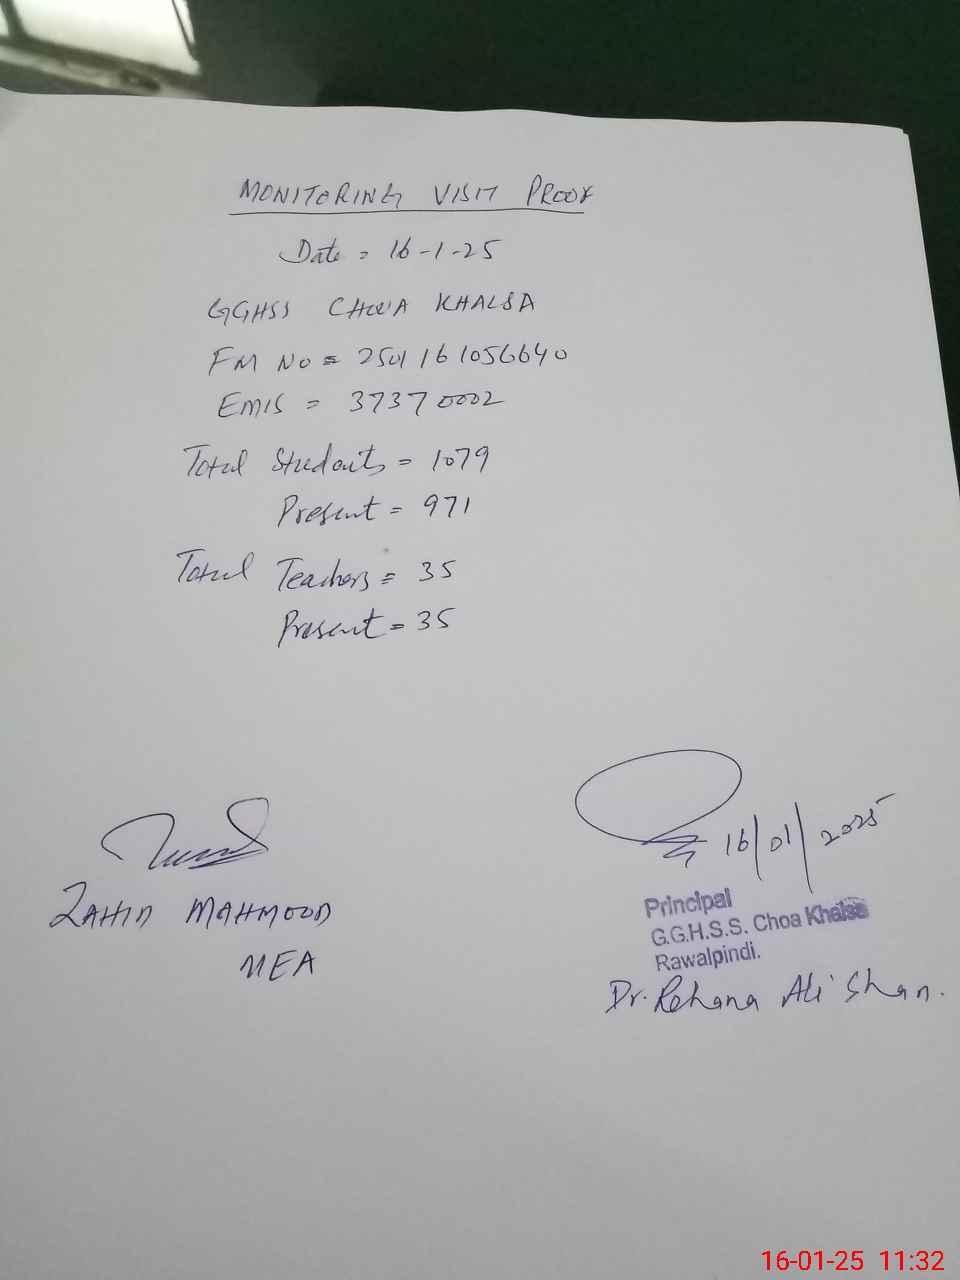 MONITORING VISIT PROOF
Date = 16-1-25
GGHSS CHOUA KHALSA
FM No = 2501161056640
EMIS = 37370002
Total Students = 1079
Present = 971
Total Teachers = 35
Present = 35
16/01/2025
ZAHID MAHMOOD
MEA
Principal
G.G.H.S.S. Choa Khalsa
Rawalpindi.
Dr. Rehana Ali Shan.
16-01-25 11:32